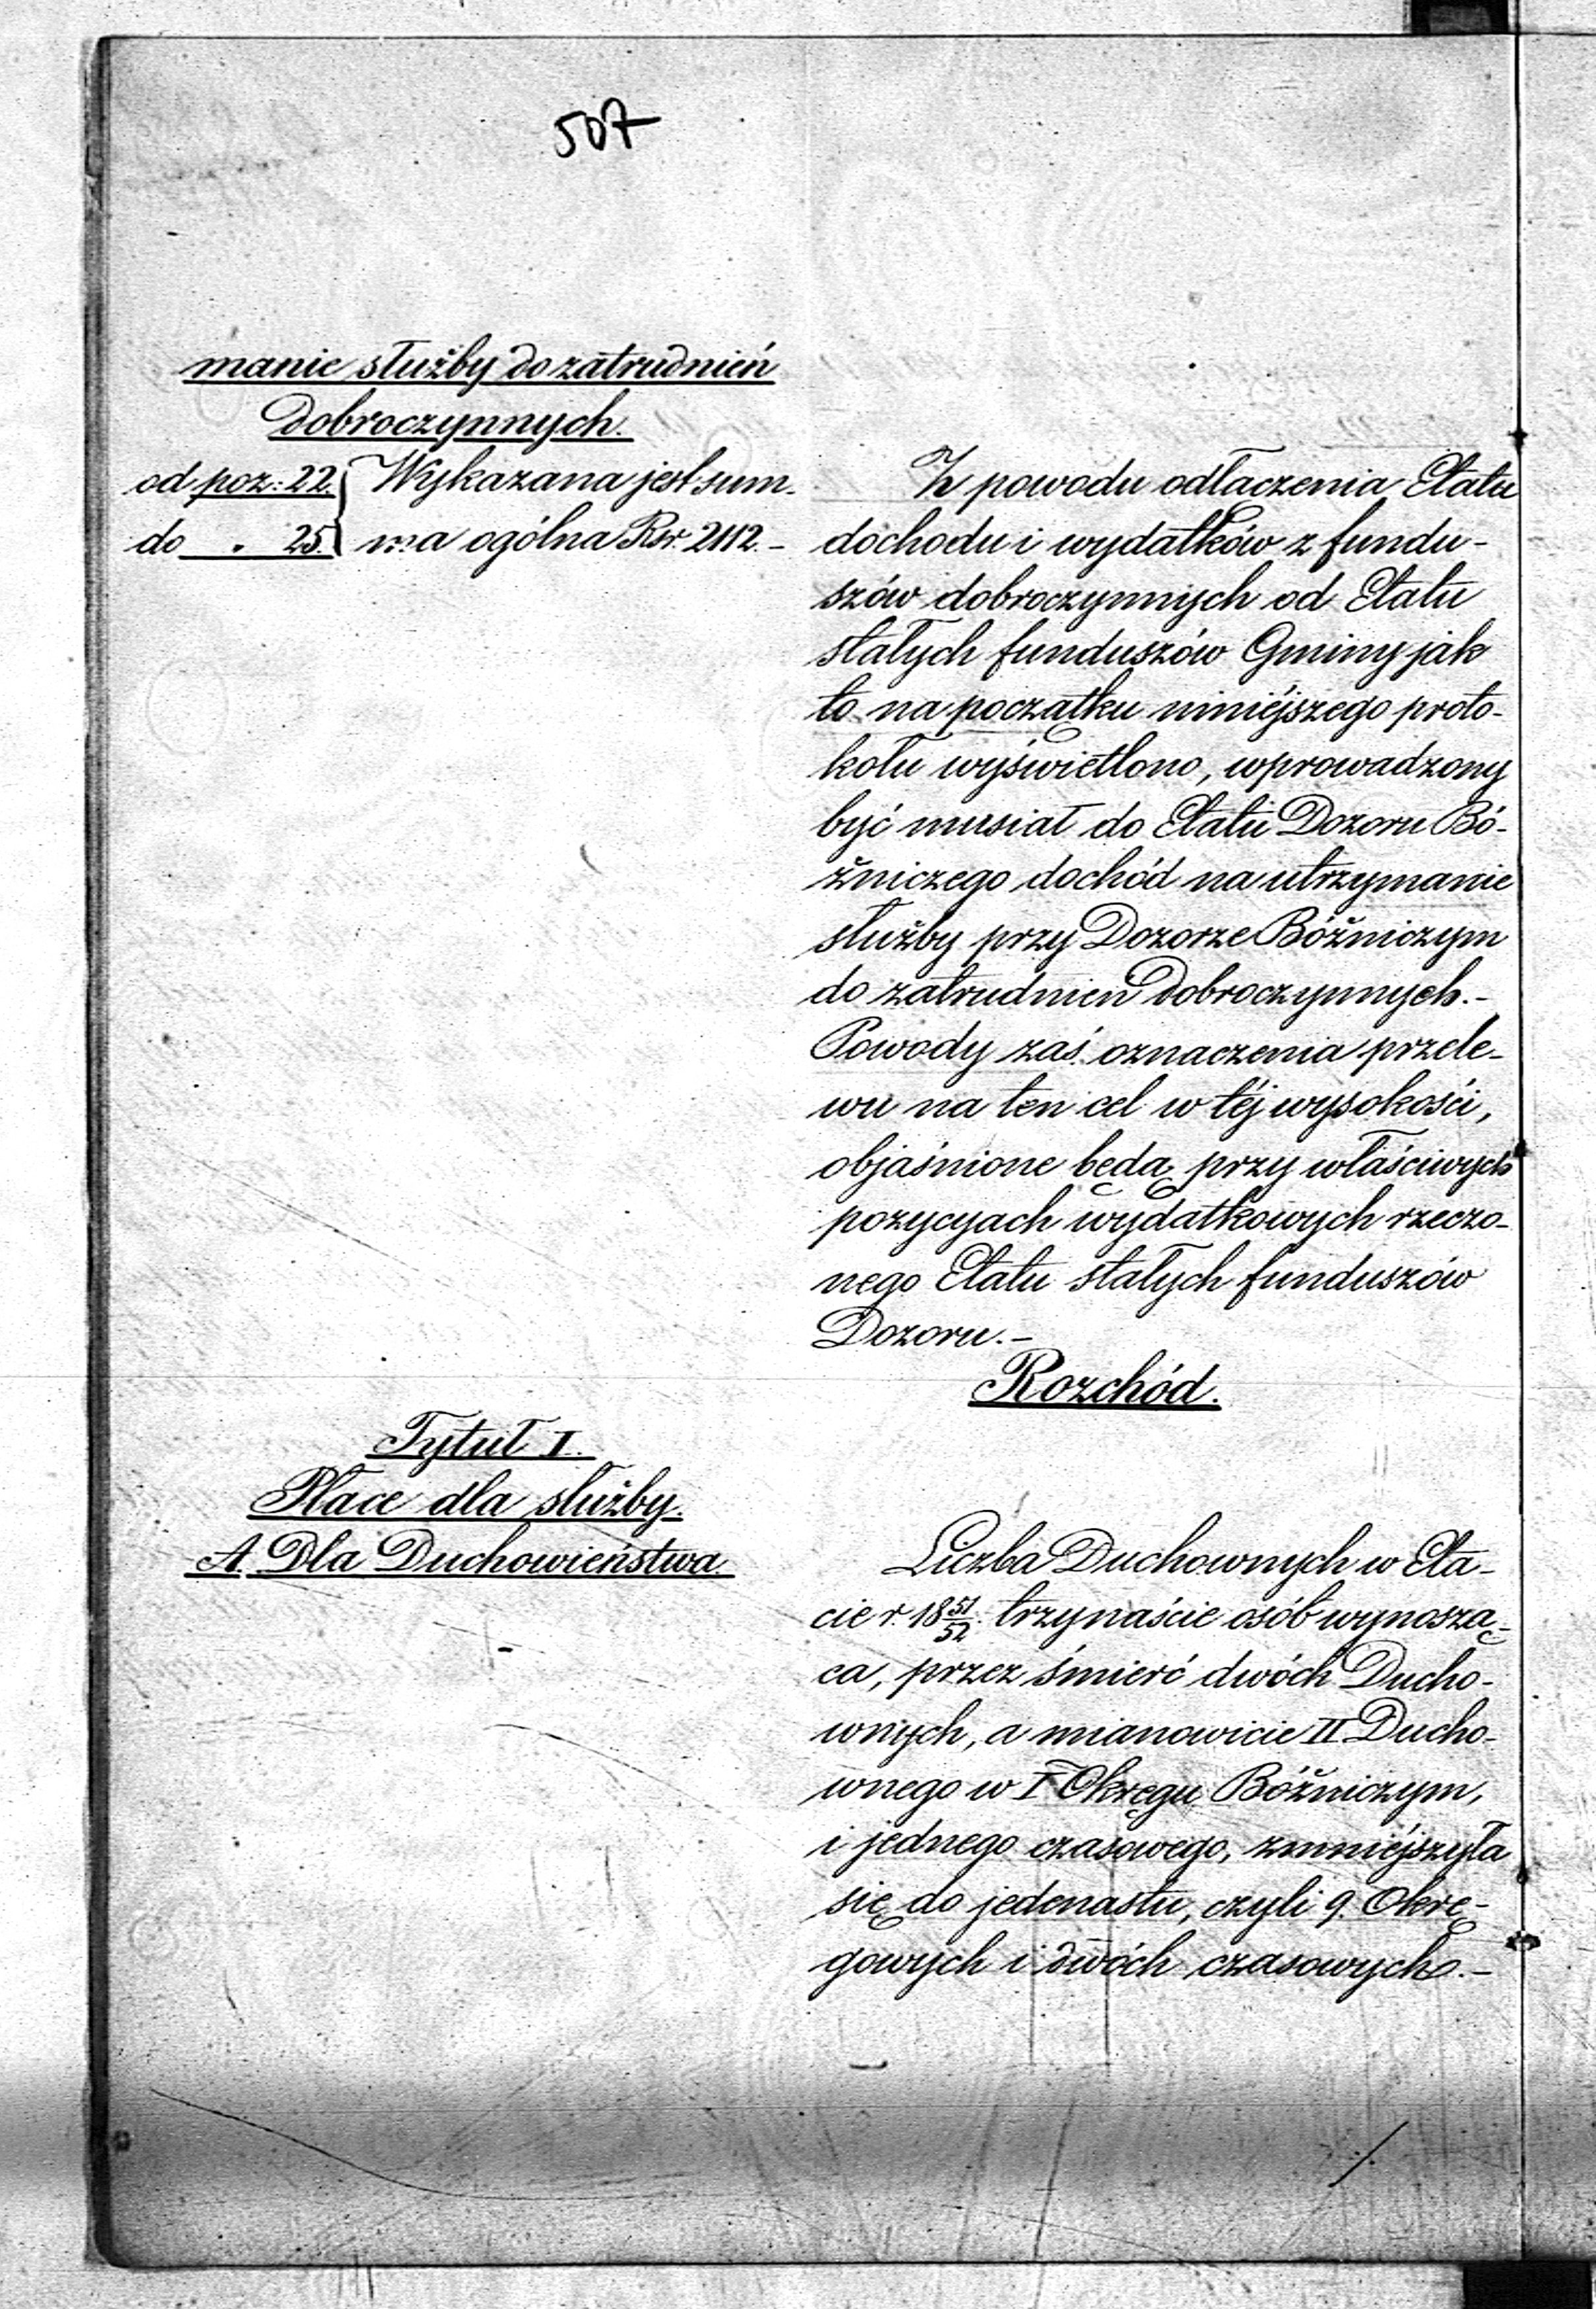 507
manie służby do zatrudnień
dobroczynnych.
od poz: 22. Wykazana jest sum-
do " 25. ma ogólna Rsr. 2112.-
Z powodu odłączenia Etatu
dochodu i wydatków z fundu-
szów dobroczynnych od Etatu
stałych funduszów Gminy jak
to na początku niniéjszego proto-
kołu wyświetlono, wprowadzony
być musiał do Etatu Dozoru Bó-
żniczego dochód na utrzymanie
służby przy Dozorze Bóżniczym
do zatrudnień dobroczynnych.-
Powody zaś oznaczenia przele-
wu na ten cel w téj wysokości,
objaśnione będą przy właściwych
pozycyach wydatkowych rzeczo-
nego Etatu stałych funduszów
Dozoru.-
Rozchód.
Tytuł I.
Płace dla służby.
A. Dla Duchowieństwa.
Liczba Duchownych w Eta-
cie r. 18 51/52. trzynaście osób wynoszą-
ca, przez śmierć dwóch Ducho-
wnych, a mianowicie II Ducho-
wnego w I Okręgu Bóżniczym,
i jednego czasowego, zmniéjszyła
się do jedenastu, czyli 9. Okrę-
gowych i dwóch czasowych.-